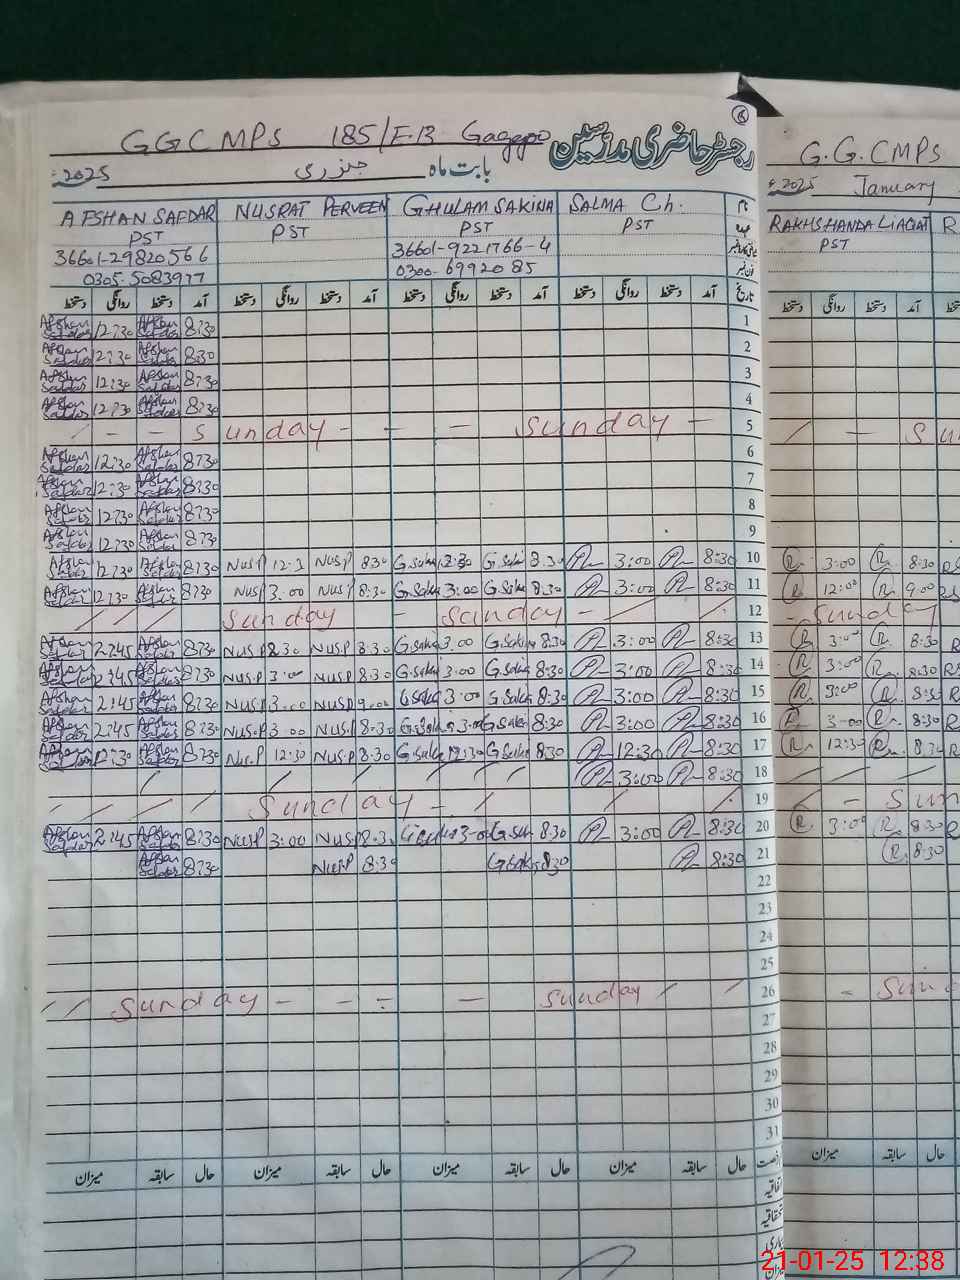 GGCMPS 185/E.B Gaggoo
رجسٹر حاضری مدرسین
بابت ماہ جنوری 2025ء
AFSHAN SAFDAR NUSRAT PERVEEN GHULAM SAKINA SALMA Ch. نام
PST PST PST PST عہدہ
36601-2982056 6 36601-9221766-4
0305-5083977 0300-6992085 فون نمبر
دستخط روانگی دستخط آمد دستخط روانگی دستخط آمد دستخط روانگی دستخط آمد دستخط روانگی دستخط آمد تاریخ
Afshan Safdar 12:30 Afshan Safdar 8:30 1
Afshan Safdar 12:30 Afshan Safdar 8:30 2
Afshan Safdar 12:30 Afshan Safdar 8:30 3
Afshan Safdar 12:30 Afshan Safdar 8:30 4
Sunday Sunday 5
Afshan Safdar 12:30 Afshan Safdar 8:30 6
Afshan Safdar 12:30 Afshan Safdar 8:30 7
Afshan Safdar 12:30 Afshan Safdar 8:30 8
Afshan Safdar 12:30 Afshan Safdar 8:30 9
Afshan Safdar 12:30 Afshan Safdar 8:30 Nus.P 12:3 Nus.P 8:30 G.Sakina G.Sakina 8:30 3:00 8:30 10
Afshan Safdar 12:30 Afshan Safdar 8:30 Nus.P 3:00 Nus.P 8:30 G.Sakina 3:00 G.Sakina 8:30 3:00 8:30 11
Sunday Sunday 12
Afshan Safdar 2:45 Afshan Safdar 8:30 Nus.P Nus.P 8:30 G.Sakina 3:00 G.Sakina 8:30 3:00 8:30 13
Afshan Safdar 2:45 Afshan Safdar 8:30 Nus.P 3:00 Nus.P 8:30 G.Sakina 3:00 G.Sakina 8:30 3:00 8:30 14
Afshan Safdar 2:45 Afshan Safdar 8:30 Nus.P 3:00 Nus.P 9:00 G.Sakina 3:00 G.Sakina 8:30 3:00 8:30 15
Afshan Safdar 2:45 Afshan Safdar 8:30 Nus.P 3:00 Nus.P 8:30 G.Sakina 3:00 G.Sakina 8:30 3:00 8:30 16
Afshan Safdar 12:30 Afshan Safdar 8:30 Nus.P 12:30 Nus.P 8:30 G.Sakina 12:30 G.Sakina 8:30 12:30 8:30 17
3:00 8:30 18
Sunday 19
Afshan Safdar 2:45 Afshan Safdar 8:30 Nus.P 3:00 Nus.P 8:3 3:00 G.Sakina 8:30 3:00 8:30 20
Afshan Safdar 8:30 Nus.P 8:30 G.Sakina 8:30 8:30 21
22
23
24
25
Sunday Sunday 26
27
28
29
30
31
میزان سابقہ حال میزان سابقہ حال میزان سابقہ حال میزان سابقہ حال رخصت
اتفاقیہ
G.G.CMPS
2025ء January
RAKHSHANDA LIAQAT R
PST
دستخط روانگی دستخط آمد
Su
R 3:00 R 8:30
R 12:00 R 9:00
Sunday
R 3:00 R 8:30
R 3:00 R 8:30
R 3:00 R 8:30
R 3:00 R 8:30
R 12:30 R 8:30
Sun
R 3:00 R 8:30
R 8:30
Sun
میزان سابقہ حال
21-01-25 12:38